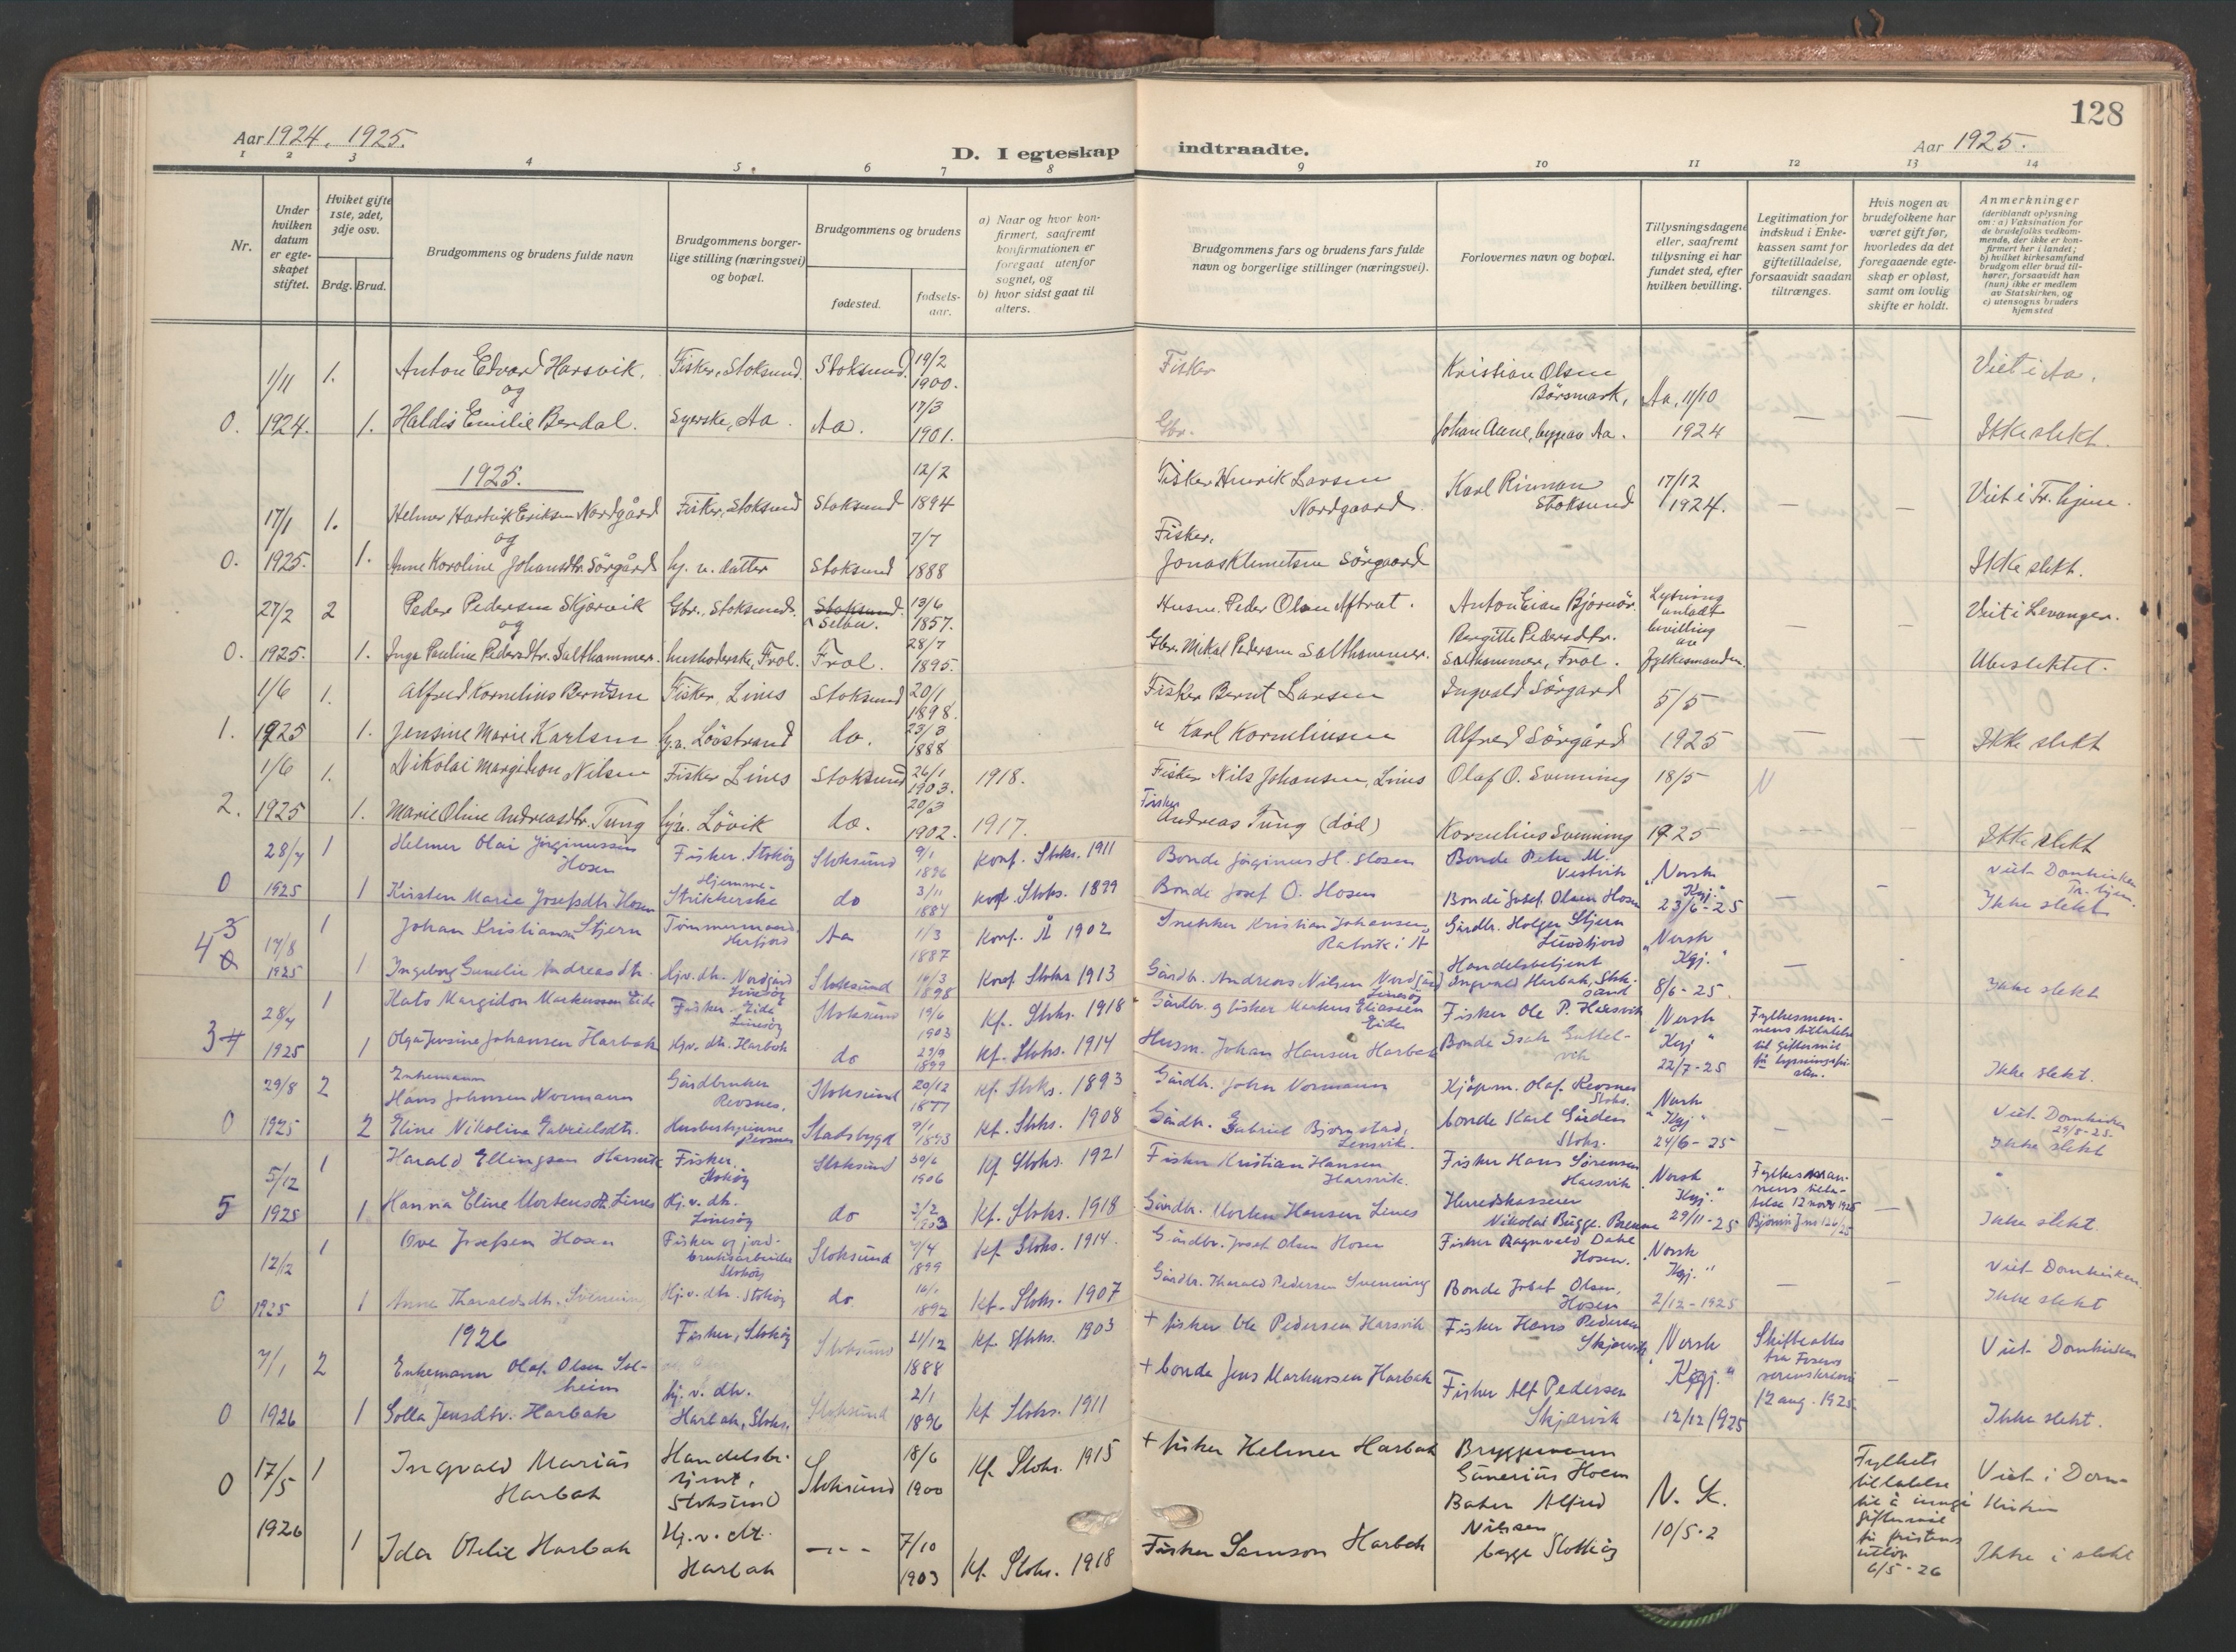 128
Aar 1924, 1925.
D. I egteskap indtraadte.
Aar 1925.
1 2 3 4 5 6 7 8 9 10 11 12 13 14
Nr.
Under hvilken datum er egteskapet stiftet.
Hvilket gifte 1ste, 2det, 3dje osv.
Brdg. Brud.
Brudgommens og brudens fulde navn
Brudgommens borgerlige stilling (næringsvei) og bopæl.
Brudgommens og brudens
fødested.
fødselsaar.
a) Naar og hvor konfirmert, saafremt konfirmationen er foregaat utenfor sognet, og
b) hvor sidst gaat til alters.
Brudgommens fars og brudens fars fulde navn og borgerlige stillinger (næringsvei).
Forlovernes navn og bopæl.
Tillysningsdagene eller, saafremt tillysning ei har fundet sted, efter hvilken bevilling.
Legitimation for indskud i Enkekassen samt for giftetilladelse, forsaavidt saadan tiltrænges.
Hvis nogen av brudefolkene har været gift før, hvorledes da det foregaaende egteskap er opløst, samt om lovlig skifte er holdt.
Anmerkninger
(deriblandt oplysning om: a) Vaksination for de brudefolks vedkommende, der ikke er konfirmert her i landet; b) hvilket kirkesamfund brudgom eller brud tilhører, forsaavidt han (hun) ikke er medlem av Statskirken, og c) utensogns bruders hjemsted
1/11 1. Anton Edvard Harsvik, Fisker, Stoksund. Stoksund 19/2 1900. Fisker Kristian Olsen Börsmark, Aa, 11/10 Viet i Aa.
og
0. 1924. 1. Haldis Emilie Berdal. Syerske, Aa. Aa. 17/3 1901. Gbr. Johan Aune, begge av Aa. 1924 — — Ikke slekt.
1925.
17/1 1. Helmer Hartvik Eriksen Nordgård Fisker, Stoksund Stoksund 12/2 1894 Fisker Henrik Larsen Nordgaard. Karl Rinnan Stoksund 17/12 1924. — — Viet i Tr. hjem.
og
0. 1925. 1. Anne Karoline Johansdtr. Sörgård hj. v. datter Stoksund 7/7 1888 Fisker, Jonas Klemetsen Sörgaard Ikke slekt.
27/2 2 Peder Pedersen Skjærvik Gbr., Stoksund. Selbu. 13/6 1857. Husm. Peder Olsen Aftret. Anton Eian Bjørnör. Lysning unladt — — Viet i Levanger.
og
0. 1925. 1. Inga Pauline Pedersdtr. Salthammer. husholderske, Frol. Frol. 28/7 1895. Gbr. Mikal Pedersen Salthammer. Bergitte Pedersdtr. Salthammer, Frol. bevilling av Fylkesmanden. Ubeslektet.
1/6 1. Alfred Kornelius Berntsen Fisker, Lines Stoksund 20/1 1898. Fisker Bernt Larsen Ingvald Sörgard 5/5
1. 1925 1. Jensine Marie Karlsen hj.v. Lövstrand do. 23/3 1888 " Karl Korneliusen Alfred Sörgård 1925 — — Ikke slekt
1/6 1. Nikolai Margidon Nilsen Fisker Lines Stoksund 26/1 1903. 1918. Fisker Nils Johansen, Lines Olaf O. Svenning 18/5
2. 1925 1. Marie Oline Andreasdtr. Tung hjv. Lövik do. 20/3 1902. 1917. Fisker Andreas Tung (död) Kornelius Svenning 1925 — — Ikke slekt
28/4 1 Helmer Olai Jörginussen Hosen Fisker. Stokög Stoksund 9/1 1896 Konf. Stoks. 1911 Bonde Jörginus H. Hosen Bonde Peter M. Vestvik "Norsk Viet Domkirken Tr. hjem.
0 1925 1 Kirsten Marie Josefsdtr. Hosen Hjemme-Strikkerske do 3/11 1884 Konf. Stoks. 1899 Bonde Josef O. Hosen Bonde Josef Olsen Hosen Kgj." 23/6-25 — — Ikke slekt
3 17/8 1 Johan Kristiansen Stjern Tömmermand Herfjord Aa 1/3 1887 Konf. Å 1902 Snekker Kristian Johansen, Ratvik i Å Gårdbr. Holger Stjern Sundfjord "Norsk
4 0 1925 1 Ingeborg Gunelie Andreasdtr. Hjv. dtr. Nordgård Linesög Stoksund 16/3 1898 Konf. Stoks 1913 Gårdb. Andreas Nilsen Nordgård Linesög Handelsbetjent Ingvald Harbak, Stoksund Kgj." 8/6-25. — — Ikke slekt
28/4 1 Mats Margidon Markussen Eide Fisker. Eide Linesög Stoksund 19/6 1903 Kf. Stoks. 1918 Gårdbr. og fisker Markus Eliassen Eide Fisker Ole P. Harsvik "Norsk Fylkesmannens tillatelse
3 4 1925 1 Olga Jensine Johansen Harbak Hjv. dtr. Harbak do 29/9 1899 Kf. Stoks. 1914 Husm. Johan Hansen Harbak Bonde Isak Guttelvik Kgj" 22/7-25 til giftermål Ikke slekt.
29/8 2 Enkemann Hans Johnsen Normann Gårdbruker Revsnes. Stoksund 20/12 1877 Kf. Stoks. 1893 Gårdbr. John Normann Kjöpm. Olaf Revsnes Stoks. Norsk
0 1925 2 Eline Nikoline Gabrielsdtr. Husbestyrinne Revsnes Stadsbygd 9/1 1893 Kf. Stoks. 1908 Gårdbr. Gabriel Bjørnstad, Lensvik. bonde Karl Gården Stoks. "Kgj" 24/6-25 — — Viet Domkirken 29/8-25. Ikke slekt
5/12 1 Harald Ellingsen Harsvik Fisker. Stokög Stoksund 30/6 1906 Kf. Stoks. 1921 Fisker Kristian Hansen Harsvik. Fisker Hans Sörensen Harsvik Norsk Fylkesmannens tillatelse 12 novb 1925
5 1925 1 Hanna Eline Mortensdtr. Lines Hj. v. dtr. Linesög do 2/2 1903 Kf. Stoks. 1918 Gårdbr. Morten Hansen Lines Herredskasserer Nikolai Bugge. Brenne Kgj." 29/11-25 — Ikke slekt.
12/12 1 Ove Josefsen Hosen Fisker og jordbruksarbeider Stokög Stoksund 7/4 1899 Kf. Stoks. 1914. Gårdbr. Josef Olsen Hosen Fisker Ragnvald Dahl Hosen. "Norsk Viet Domkirken.
0 1925 1 Anne Tharaldsdtr. Svenning Hj. v. dtr. Stokög do 16/1 1892 Kf. Stoks. 1907 Gårdbr. Tharald Pedersen Svenning Bonde Josef Olsen, Hosen Kgj." 2/12-1925 — — Ikke slekt
1926
7/1 2 Enkemann Olaf Olsen Solheim Fisker, Stokög Stoksund 21/12 1888 Kf. Stoks. 1903 + fisker Ole Pedersen Harsvik Fisker Hans Pedersen Skjærvik "Norsk Skifteattest fra Fosens sorenskriveri 12 aug. 1925 Viet Domkirken
0 1926 1 Solla Jensdtr. Harbak hj. v. dtr. Harbak, Stoks. Stoksund 2/1 1896 Kf Stoks. 1911 + bonde Jens Markussen Harbak Fisker Alf Pedersen Skjærvik Kgj." 12/12 1925 — Ikke slekt.
0 17/5 1 Ingvald Marius Harbak Handelsbetjent, Stoksund Stoksund 18/6 1900 Kf. Stoks. 1915 + fisker Helmer Harbak Bryggemann Günerius Hoem N. K. Fylkets tillatelse til å inngå giftermål Viet i Domkirken
1926 1 Ida Otelie Harbak Hj. v. dtr. Harbak - - - 7/10 1903 Kf. Stoks. 1918 Fisker Samson Harbak Baker Alfred Nilssen begge Stokkög 10/5-2 6/5-26 Ikke i slekt